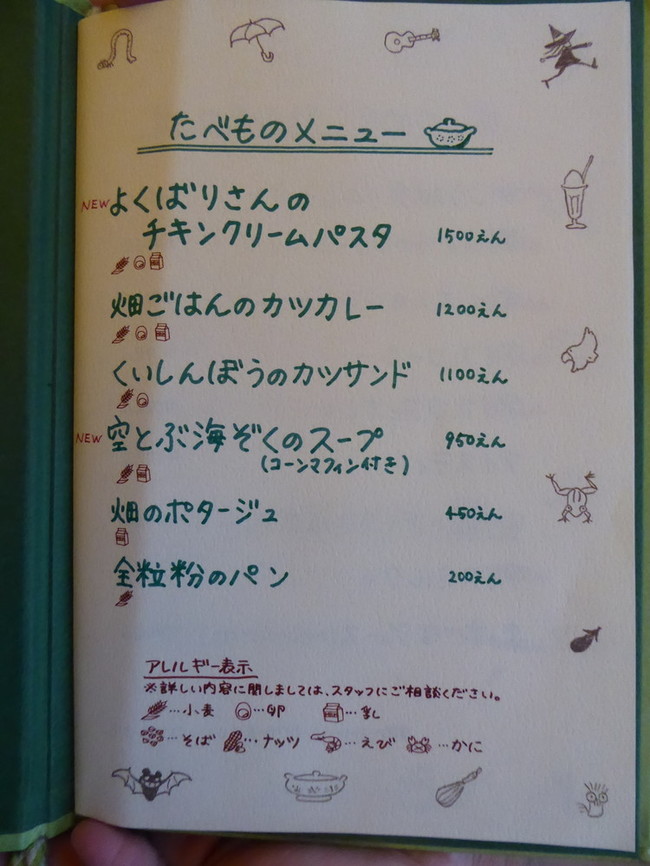 たべものメニュー
NEW よくばりさんの
チキンクリームパスタ 1500えん
畑ごはんのカツカレー 1200えん
くいしんぼうのカツサンド 1100えん
NEW 空とぶ海ぞくのスープ 950えん
(コーンマフィン付き)
畑のポタージュ 450えん
全粒粉のパン 200えん
アレルギー表示
※詳しい内容に関しましては、スタッフにご相談ください。
…小麦 …卵 …乳
…そば …ナッツ …えび …かに